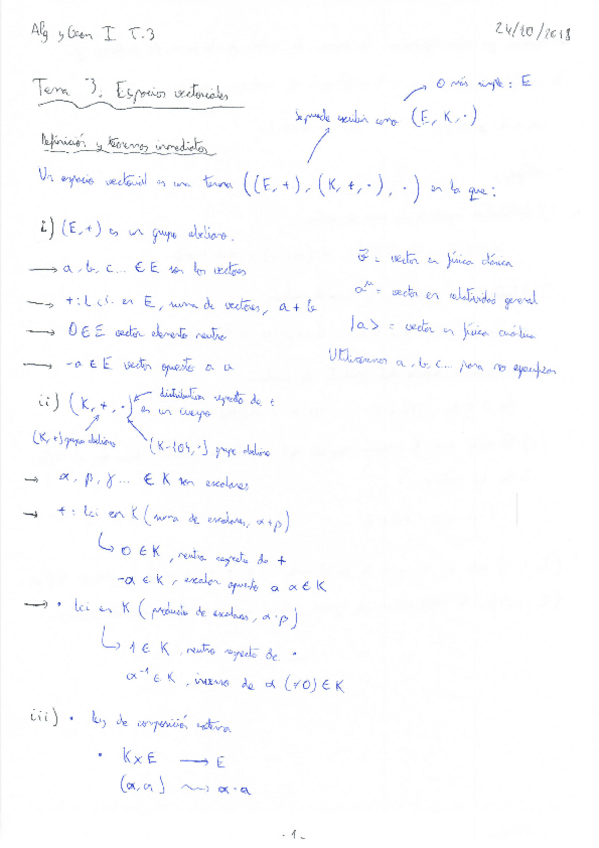 Alg y Geom I T.3
24/10/2018
Tema 3. Espacios vectoriales
O más simple: E
Se puede escribir como (E, K, ·)
Definición y teoremas inmediatos
Un espacio vectorial es una terna ((E, +), (K, +, ·), ·) en la que:
i) (E, +) es un grupo abeliano.
→ a, b, c... ∈ E son los vectores
→ +: lci en E, suma de vectores, a + b
→ 0 ∈ E vector elemento neutro
→ -a ∈ E vector opuesto a a
= vector en física clásica
a^μ = vector en relatividad general
|a> = vector en física cuántica
Utilizaremos a, b, c... para no especificar
ii) (K, +, ·) es un cuerpo
distributiva respecto de +
(K, +) grupo abeliano
(K-{0}, ·) grupo abeliano
→ α, β, γ... ∈ K son escalares
→ +: lci en K (suma de escalares, α+β)
0 ∈ K, neutro respecto de +
-α ∈ K, escalar opuesto a α ∈ K
→ · lci en K (producto de escalares, α·β)
1 ∈ K, neutro respecto de ·
α⁻¹ ∈ K, inverso de α (≠0) ∈ K
iii) · ley de composición externa
· K×E → E
(α, a) ⇝ α·a
- 1 -